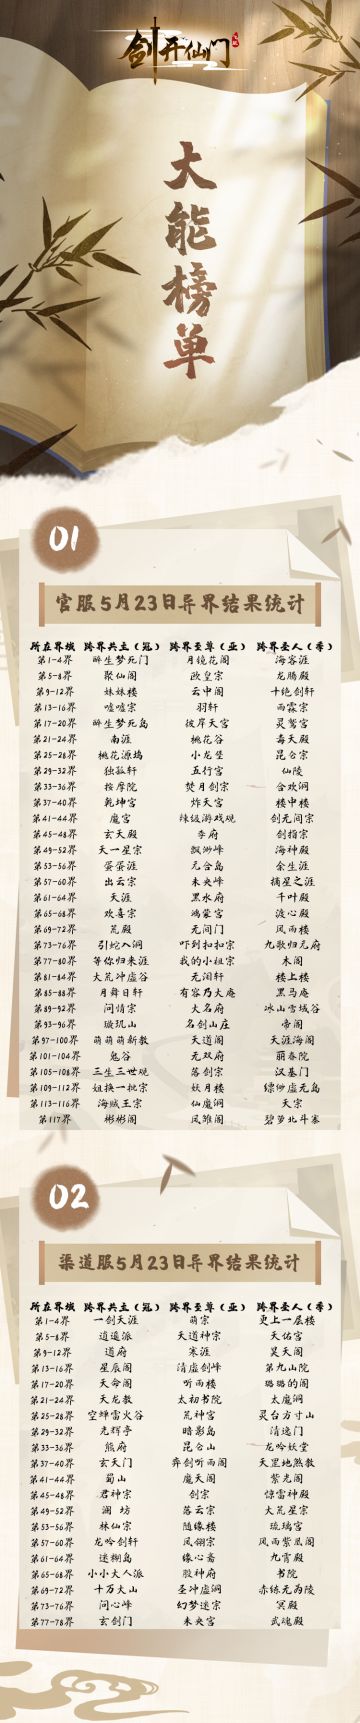 剑开仙门
大能榜单
01
官服5月23日异界结果统计
所在界域 跨界共主（冠） 跨界至尊（亚） 跨界圣人（季）
第1-4界 醉生梦死门 月镜花阁 海客涯
第5-8界 聚仙阁 欧皇宗 龙腾殿
第9-12界 妹妹楼 云中阁 十绝剑轩
第13-16界 嘘嘘宗 羽轩 雨霖宗
第17-20界 醉生梦死岛 彼岸天宫 灵鹫宫
第21-24界 南涯 桃花谷 毒天殿
第25-28界 桃花源坞 小龙堡 昆仑宗
第29-32界 独孤轩 五行宫 仙陵
第33-36界 按摩院 焚月剑宗 合欢洞
第37-40界 乾坤宫 炸天宫 楼中楼
第41-44界 魔宫 辣级游戏观 剑无间宗
第45-48界 玄天殿 李府 剑指宗
第49-52界 天一星宗 飘渺峰 海神殿
第53-56界 蛋蛋涯 元合岛 余生涯
第57-60界 出云宗 未央峰 摘星之涯
第61-64界 天涯 黑水府 千叶殿
第65-68界 欢喜宗 鸿蒙宫 渡心殿
第69-72界 荒殿 无间门 风雨楼
第73-76界 引蛇入洞 吓到扣扣宗 九歌归元府
第77-80界 等你归来涯 我的小祖宗 木阁
第81-84界 大荒冲虚谷 无闲轩 楼上楼
第85-88界 月舞日轩 有容乃大庵 黑马庵
第89-92界 问情宗 大名府 冰山雪域谷
第93-96界 璇玑山 名剑山庄 帝阁
第97-100界 萌萌萌新教 天道阁 天涯海阁
第101-104界 鬼谷 无双府 丽春院
第105-108界 三生三世观 落剑宗 汉基门
第109-112界 姐换一批宗 妖月楼 缥缈虚无岛
第113-116界 海贼王宗 仙魔洞 天宗
第117界 彬彬阁 凤雏阁 碧萝北斗寨
02
渠道服5月23日异界结果统计
所在界域 跨界共主（冠） 跨界至尊（亚） 跨界圣人（季）
第1-4界 一剑天涯 萌宗 更上一层楼
第5-8界 逍遥派 天道神宗 天佑宫
第9-12界 道府 寒涯 昊天阁
第13-16界 星辰阁 清虚剑峰 第九山院
第17-20界 天命阁 听雨楼 璐璐的阁
第21-24界 天龙教 太初书院 太魔洞
第25-28界 空蝉雷火谷 荒神宫 灵台方寸山
第29-32界 光辉亭 暗影岛 清逸门
第33-36界 熊府 昆仑山 龙吟妖堂
第37-40界 玄天门 弈剑听雨阁 天罡地煞教
第41-44界 蜀山 魔天阁 紫光阁
第45-48界 君神宗 剑宗 惊雷神殿
第49-52界 澜 坊 落云宗 大荒星宗
第53-56界 林仙宗 随缘楼 琉璃宫
第57-60界 龙吟剑轩 凤翎宗 风雨紫凰阁
第61-64界 迷糊岛 缘心斋 九霄殿
第65-68界 小小大人派 股神府 书院
第69-72界 十万大山 圣冲虚洞 赤练无为陵
第73-76界 问心峰 幻梦迷宗 冥殿
第77-78界 玄剑门 未央宫 武魂殿